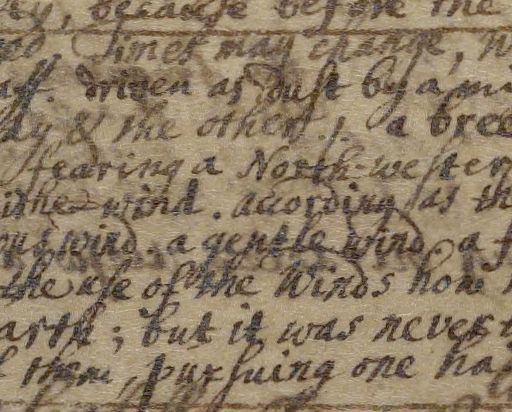 because before the
Times may change,
driven as dust by a
& the other; a bree
fearing a North-wester
the wind. according as th
wind. a gentle wind, a f
the use of the Winds how
arth; but it was never t
them, pursuing one ha